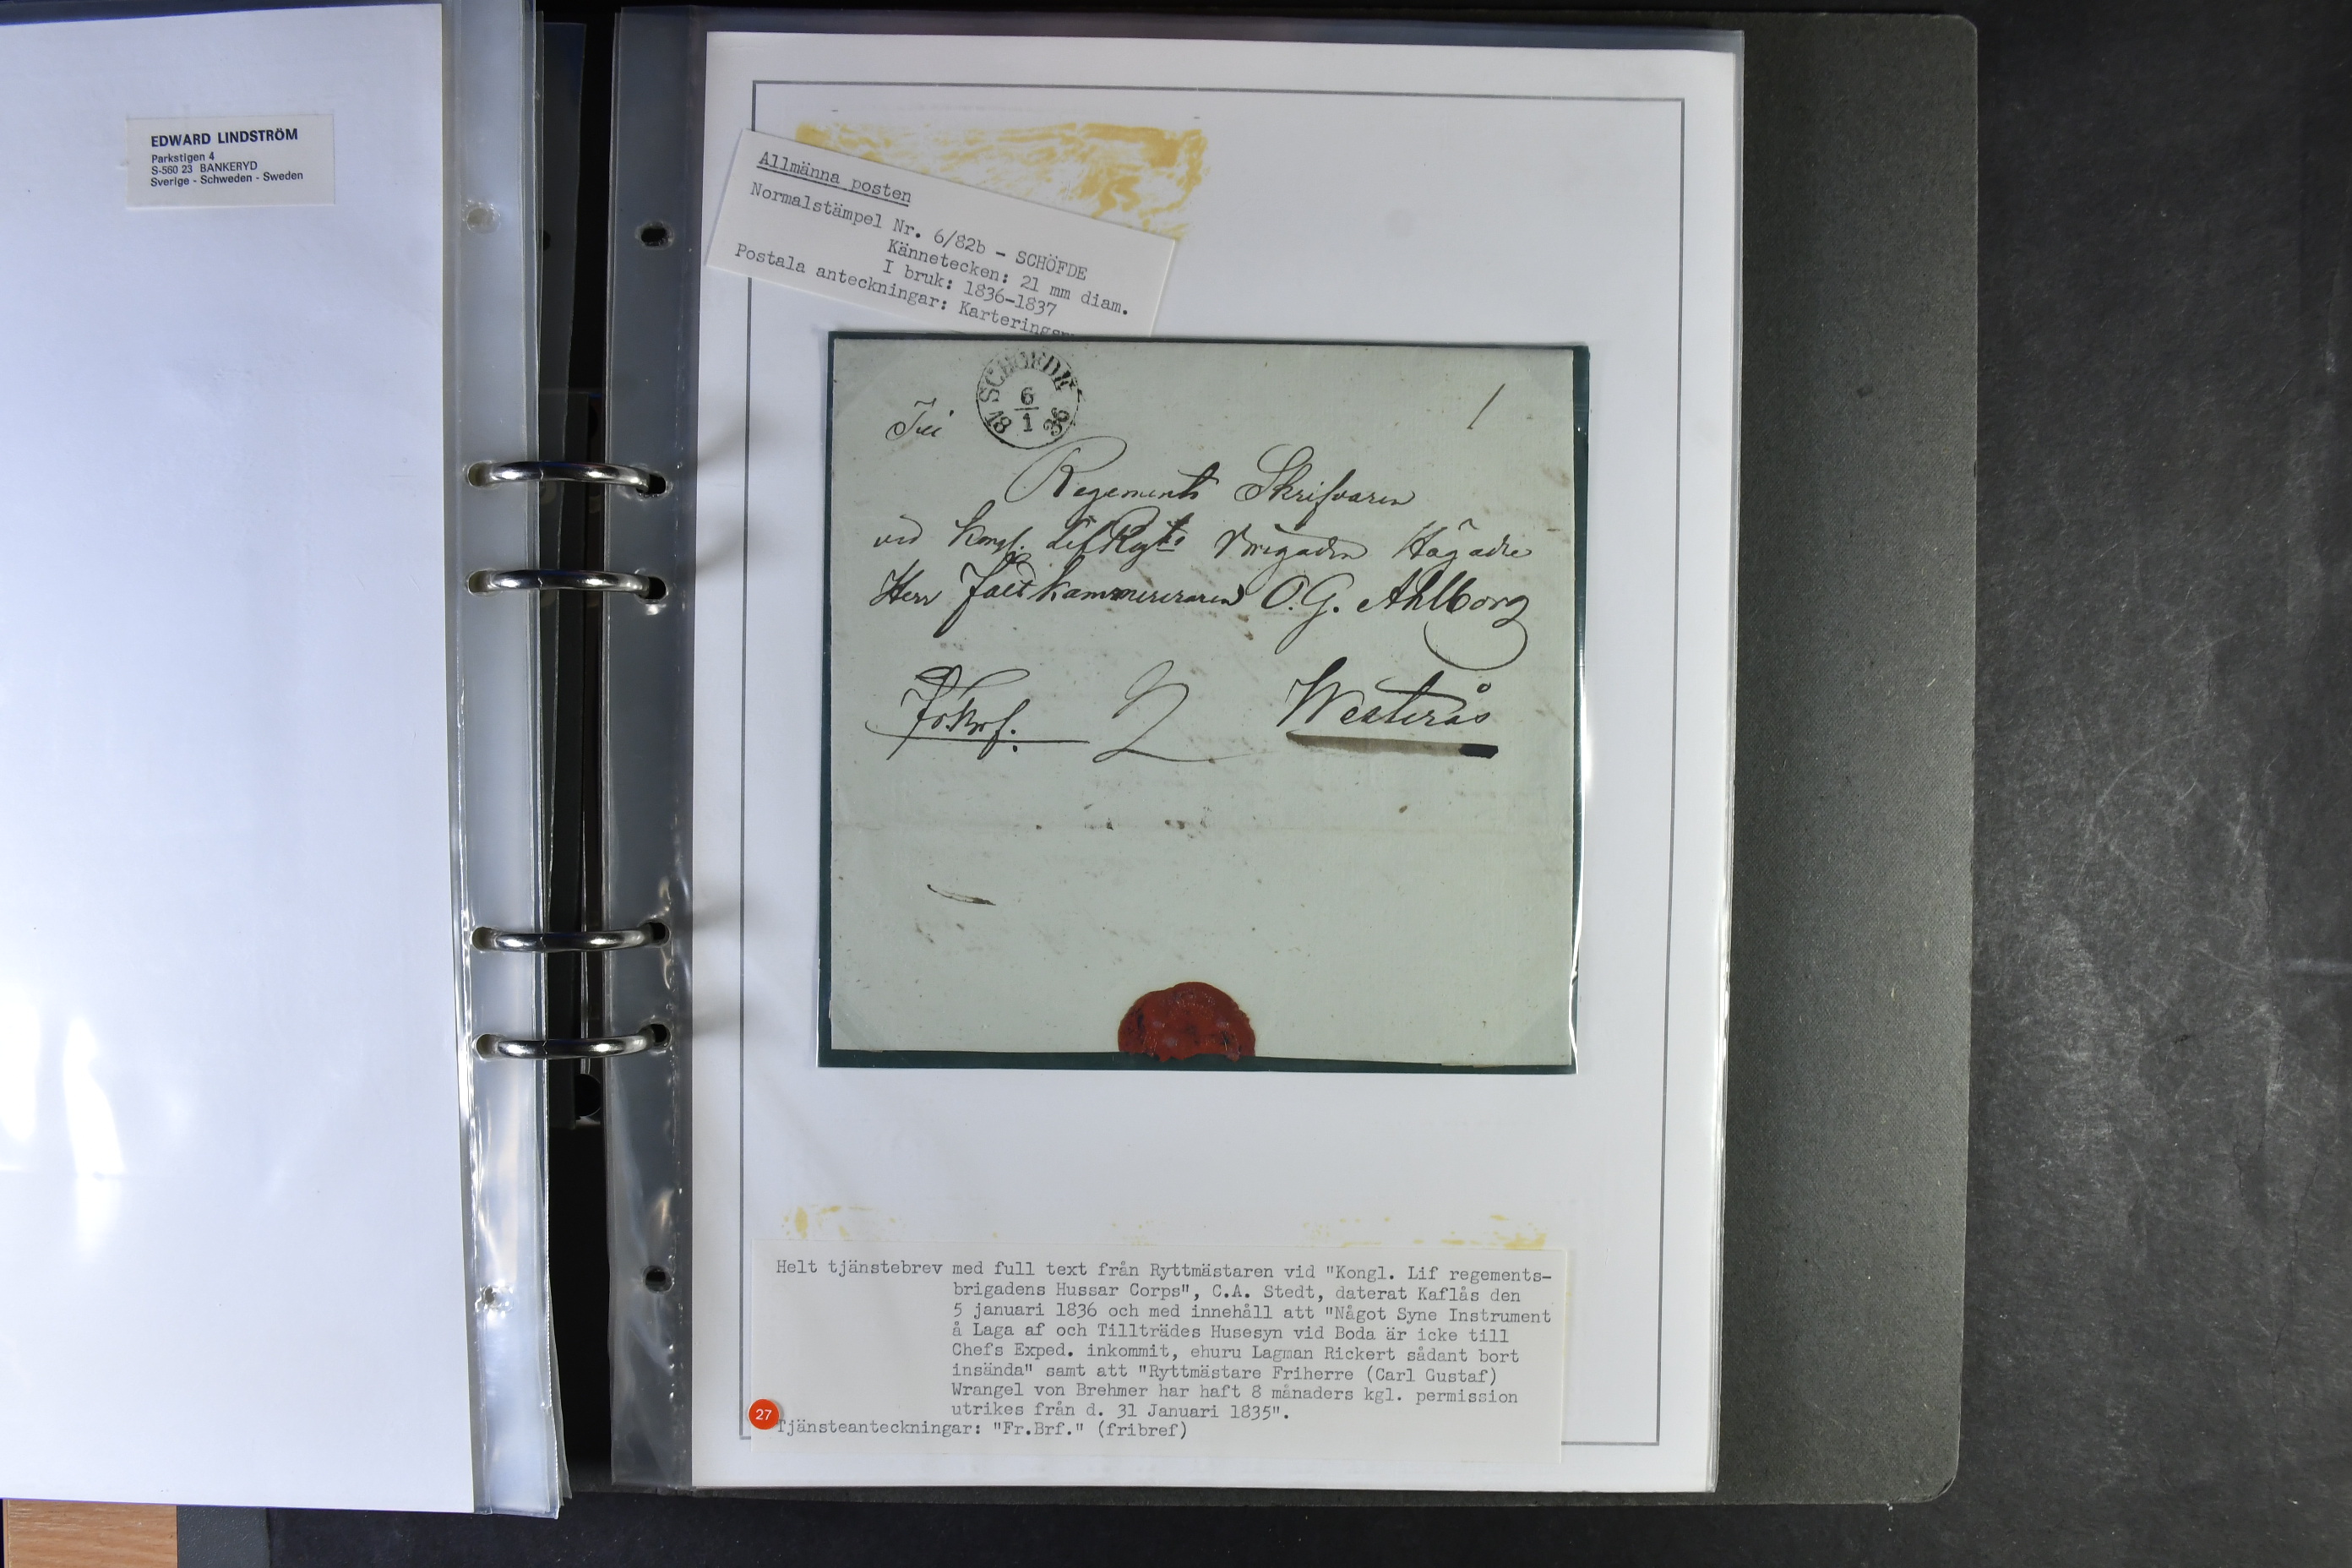 EDWARD LINDSTRÖM
Parkstigen 4
S-560 23 BANKERYD
Sverige - Schweden - Sweden
Allmänna posten
Normalstämpel Nr. 6/82b - SCHÖFDE
Kännetecken: 21 mm diam.
I bruk: 1836-1837
Postala anteckningar:
SCHOEFDE
6
1
18 36
1
Till
Regements Skrifvaren
vid Kongl. Lif Regts Brigaden Högädle
Herr Fältkammereraren O.G. Ahlborg
Fr.Brf. 2 Westerås
Helt tjänstebrev med full text från Ryttmästaren vid "Kongl. Lif regements-
brigadens Hussar Corps", C.A. Stedt, daterat Kaflås den
5 januari 1836 och med innehåll att "Något Syne Instrument
å Laga af och Tillträdes Husesyn vid Boda är icke till
Chefs Exped. inkommit, ehuru Lagman Rickert sådant bort
insända" samt att "Ryttmästare Friherre (Carl Gustaf)
Wrangel von Brehmer har haft 8 månaders kgl. permission
utrikes från d. 31 Januari 1835".
27
Tjänsteanteckningar: "Fr.Brf." (fribref)